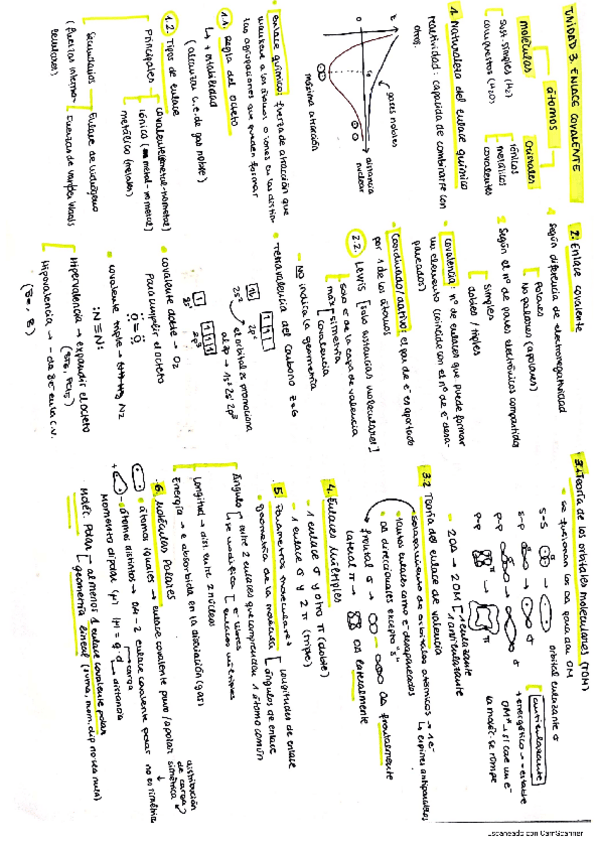 UNIDAD 3. ENLACE COVALENTE
átomos
moléculas
cristales
sust. simples (H₂)
compuestos (H₂O)
iónicos
metálicos
covalentes
1. Naturaleza del enlace químico
reactividad: capacidad de combinarse con
otros.
E
gases nobles
0
distancia
nuclear
máxima atracción
enlace químico: fuerza de atracción que
mantiene a los átomos o iones en las distintas
las agrupaciones que pueden formar
1.1. Regla del octeto
↳ + estabilidad
(alcanzar c.e. de gas noble)
1.2. Tipos de enlace
Principales
covalente (nometal-nometal)
iónica (metal-nometal)
metálico (metales)
Secundario
(fuerzas intermoleculares)
Enlace de hidrógeno
Fuerzas de van der Waals
2. Enlace covalente
Según diferencia de electronegatividad
Polares
No polares (apolares)
Según el nº de pares electrónicos compartidos
simples
dobles / triples
covalencia: nº de enlaces que puede formar
un elemento (coincide con el nº de e⁻ desapareados)
Coordinado/dativo: el par de e⁻ es aportado
por 1 de los átomos
2.2. Lewis [solo sustancias moleculares]
solo e⁻ de la capa de valencia
más simetría
covalencia
NO indica la geometría
Tetravalencia del carbono Z=6
2s² 2p²
el orbital 2s promociona
al 2p → 1s² 2s¹ 2p³
2s¹ 2p³
covalente doble → O₂
Para cumplir el octeto
:Ö=Ö:
covalente triple → N₂
:N≡N:
Hipervalencia → expandir el octeto
Hipovalencia → - de 8e⁻ en la c.v.
(Be, B)
3.1. Teoría de los orbitales moleculares (TOM)
se fusionan los OA para dar OM
s-s
σ
orbital enlazante σ
s-p
σ
p-p
σ
p-p
π
antienlazante
+ energético → - estable
OM* - si cae un e⁻
la molec. se rompe
2OA → 2OM
1 enlazante
1 antienlazante
3.2 Teoría del enlace de valencia
solapamiento de orbitales atómicos → 1e⁻
↳ espines antiparalelos
tantos enlaces como e⁻ desapareados
OA direccionales excepto "s"
frontal σ →
OA frontalmente
lateral π →
OA lateralmente
4. Enlaces múltiples
1 enlace σ y otro π (doble)
1 enlace σ y 2 π (triple)
5. Parámetros moleculares
geometría de la molécula
longitudes de enlace
ángulos de enlace
Ángulo
entre 2 enlaces que comprendan 1 átomo común
se modifica
e⁻ libres
enlaces múltiples
Longitud → dist. entre 2 núcleos
Energía → e absorbida en la disociación (gas)
6. Moléculas polares
átomos iguales → enlace covalente puro/apolar
distribución
de carga
simétrica
átomos distintos → OA - 2 enlace covalente polar no es simétrica
Momento dipolar (μ) |μ| = q · d
carga
distancia
Molec. Polar
al menos 1 enlace covalente polar
geometría